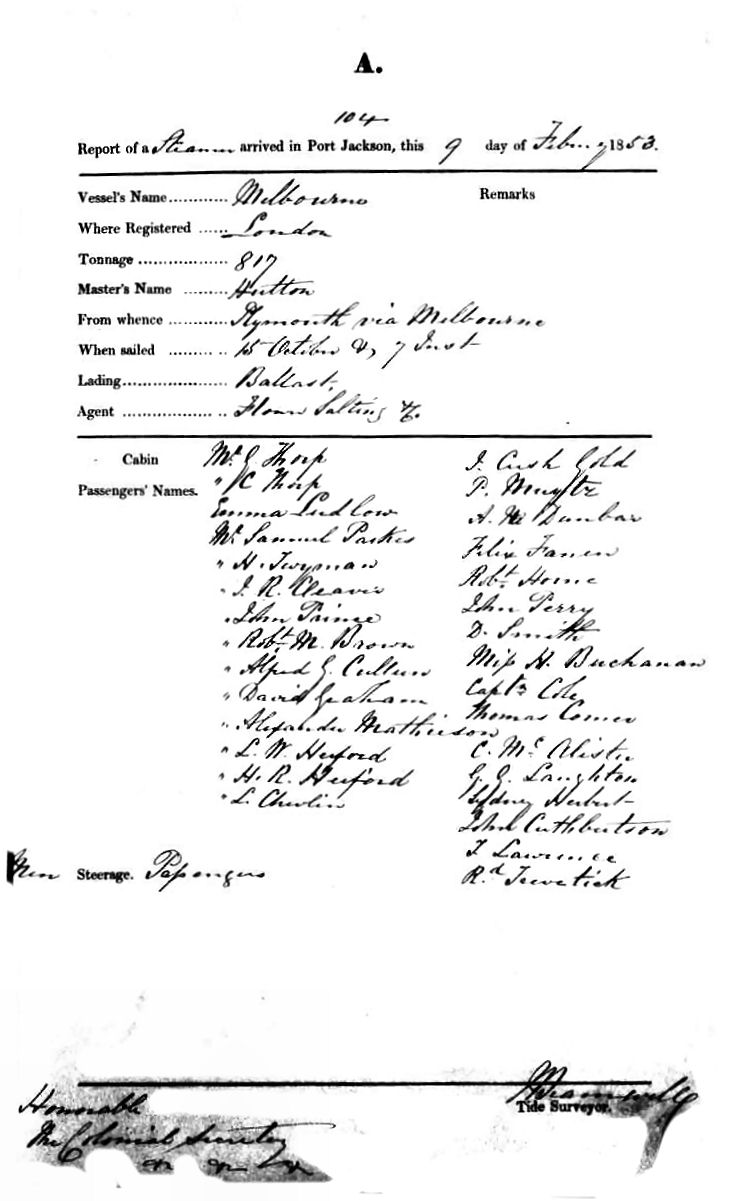 A.
104
Report of a Steamer arrived in Port Jackson, this 9 day of Febry 1853.
Vessel's Name Melbourne
Remarks
Where Registered London
Tonnage 817
Master's Name Hutton
From whence Plymouth via Melbourne
When sailed 15 October & 7 Inst
Lading Ballast
Agent Flower Salting &c.
Cabin
Passengers' Names.
Mr. G Thorp
" C Thorp
Emma Ludlow
Mr. Samuel Parkes
" H. Twyman
" J. R. Cleaver
" John Prince
" Robt. M. Brown
" Alfred G. Cullen
" David Graham
" Alexander Mathieson
" L. W. Herford
" H. R. Herford
" L.
J. Cush Gold
P.
A. Mc Dunbar
Felix
Robt. Horne
John Perry
D. Smith
Miss H. Buchanan
Captn Cole
Thomas Comer
C. Mc Alister
G. G. Laughton
Sydney Herbert
John Cuthbertson
T Lawrence
Rd.
Steerage. Passengers
Tide Surveyor.
Honorable
The Colonial Secretary